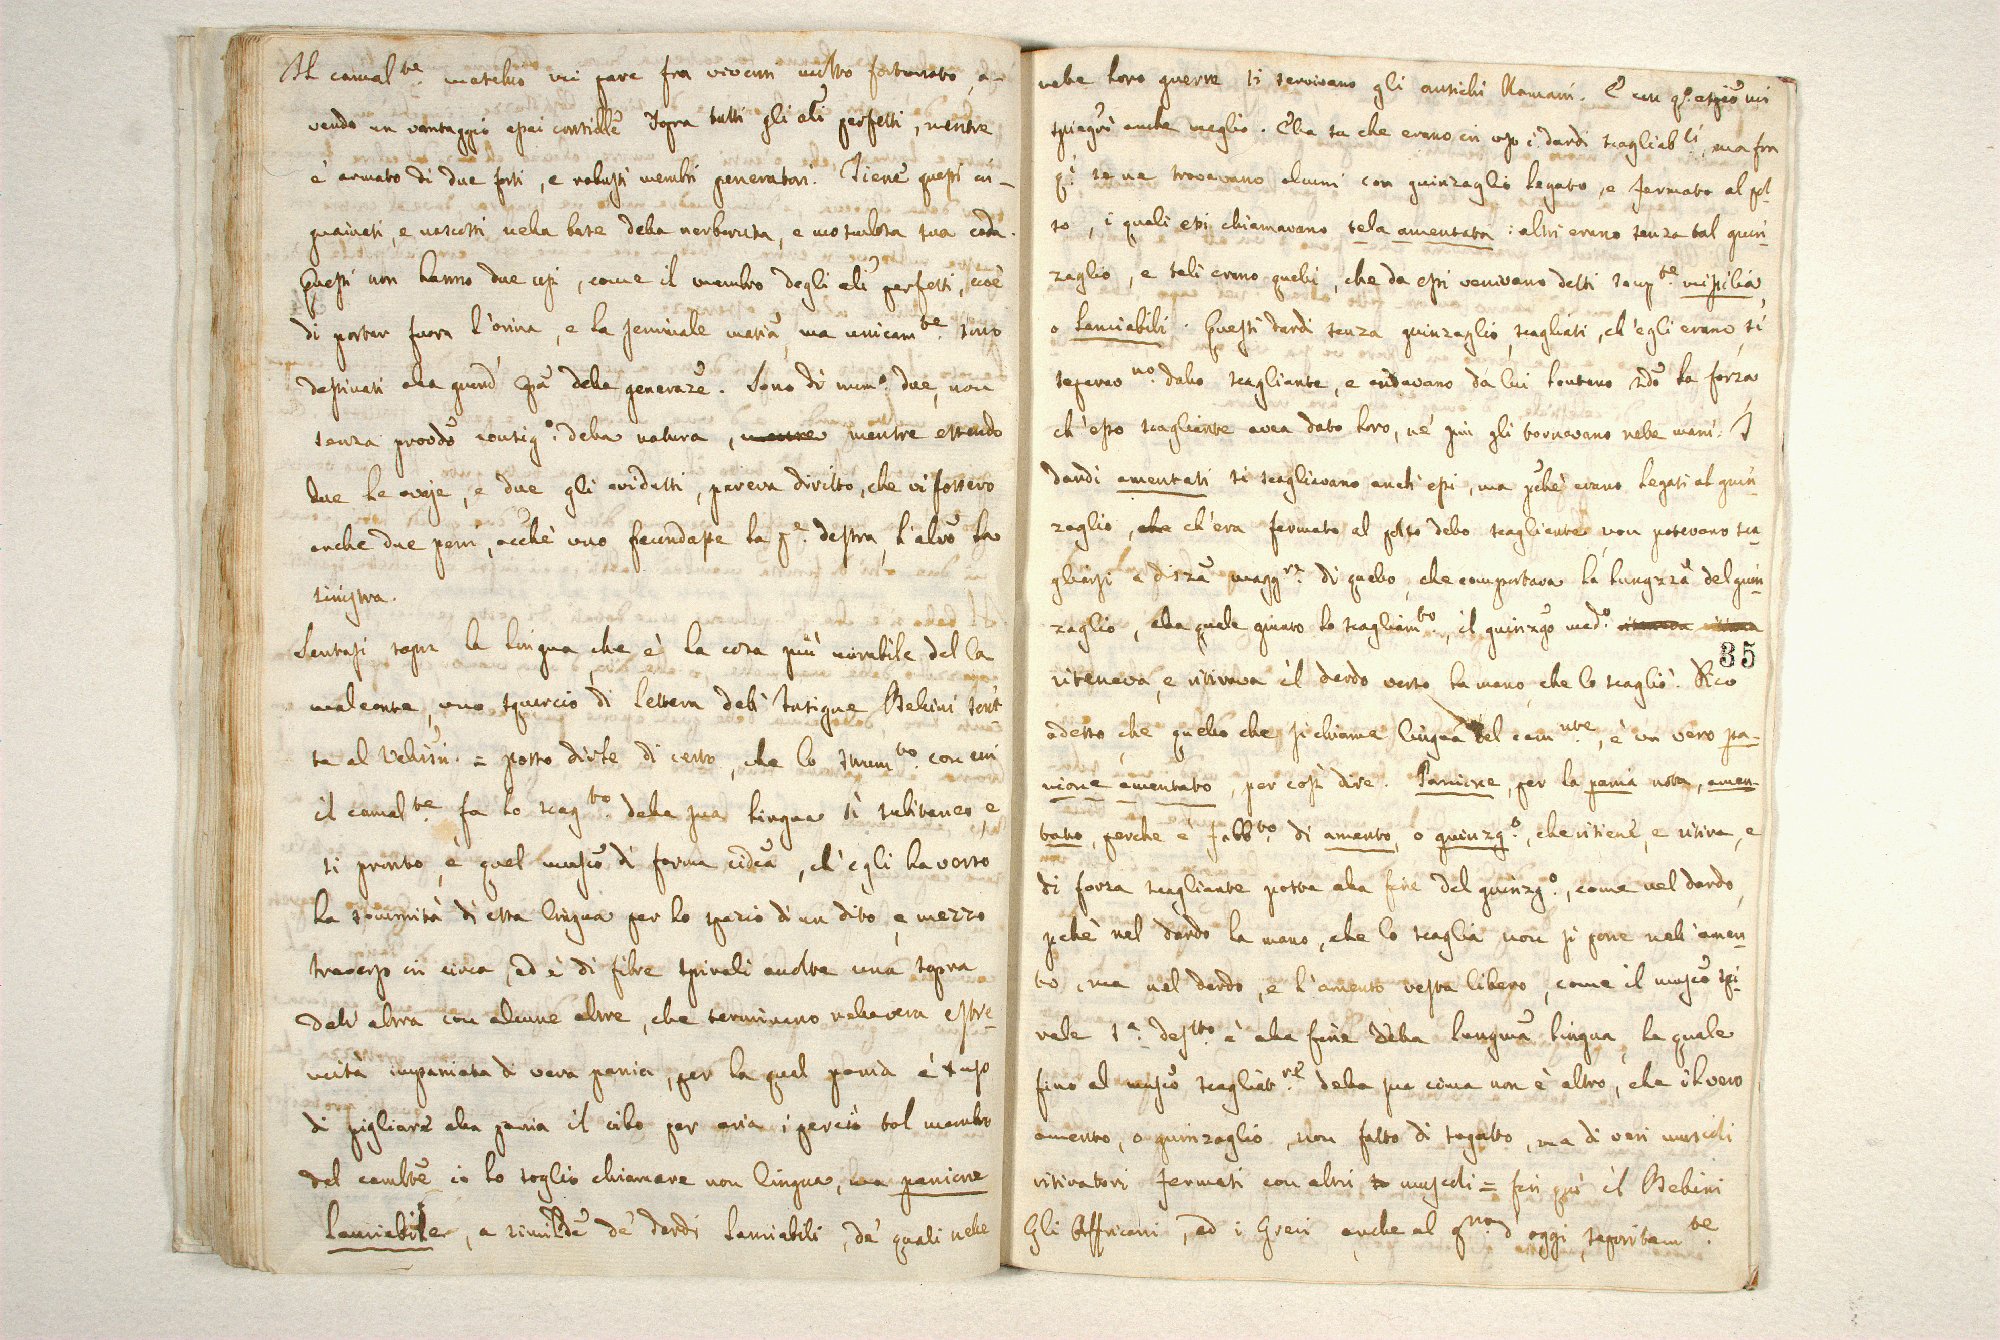 Il camal.te maschio mi pare fra viventi molto fortunato, a-
vendo un vantaggio assai sopra tutti gli ali perfetti, mentre
è armato di due forti, e robusti membri generatori. Tiene questi in-
guainati, e nascosti nella base della nerboruta, e mosculosa sua coda.
Questi non hanno due usi, come il membro degli ali perfetti, cioè
di portar fuora l'orina, e la seminale matia, ma unicam.te sono
destinati alla grand' opa della generaze. Sono di num.o due, non
senza provdo consig.o della natura, mentre essendo
due le ovaje, e due gli ovidutti, pareva diritto, che vi fossero
anche due peni, acchè uno fecundasse la p.e destra, l'altro la
sinistra.
Sentasi sopra la lingua, che è la cosa più mirabile del ca
maleonte, uno squarcio di lettera dell'Insigne Bellini scrit
ta al Vallisni. = posso dirle di certo, che lo strum.to con cui
il camal.te fa lo scag.to della sua lingua sì subitaneo, e
sì pronto, è quel musco di forma cilidca, ch'egli ha verso
la sommità di essa lingua per lo spazio di un dito, e mezzo
traverso in circa, ed è di fibre spirali andte una sopra
dell'altra con alcune altre, che terminano nella vera estre-
mità impaniata di vera pania, per la qual pania è suo
di pigliare alla pania il cibo per aria; perciò tal membro
del camlte io lo soglio chiamare non lingua, ma panione
lanciabile, a similde de' dardi lanciabili, de' quali nelle
nelle loro guerre si servivano gli antichi Romani. E con q.o espio mi
spiegrò anche meglio. Ella sa che erano in uso i dardi scagliab.li, ma fra
q.i se ne trovavano alcuni con guinzaglio legato, e fermato al pol
so, i quali essi chiamavano tela amentata: altri erano senza tal guin-
zaglio, e tali erano quelli, che da essi venivano detti semp.te missilia,
o lanciabili. Questi dardi senza guinzaglio, scagliati, ch'egli erano, si
separav.no dallo scagliante, e andavano da lui lontano sdo la forza
ch'esso scagliante avea dato loro, nè più gli tornavano nelle mani. I
dardi amentati si scagliavano anch'essi, ma pchè erano legati al guin-
zaglio, che ch'era fermato al polso dello scagliante, non potevano sca-
gliarsi a diszà magg.re di quello, che comportava la lungzza del guin-
zaglio, alla quale giunto lo scagliam.to, il guinzgo med.o
35
riteneva, e ritirava il dardo verso la mano che lo scagliò. Dico
adesso, che quello che si chiama lingua del cam.nte, è un vero pa-
nione amentato, per così dire. Panione, per la pania nota, amen-
tato, perche è fabb.to di amento, o guinzg.o, che ritiene, e ritira, e
di forza scagliante posta alla fine del guinzg.o, come nel dardo,
pchè nel dardo la mano, che lo scaglia non si pone nell'amen-
to, ma nel dardo, e l'amento resta libero, come il musco spi-
rale s.a des.tto è alla fine della lungma lingua, la quale
fino al musco scagliat.re della sua cima non è altro, che il vero
amento, o guinzaglio, non fatto di sogatto, ma di veri muscoli
ritiratori fermati con altri muscoli = fin quì il Bellini
Gli Affricani, ed i Greci anche al g.no d'oggi, saporitam.te